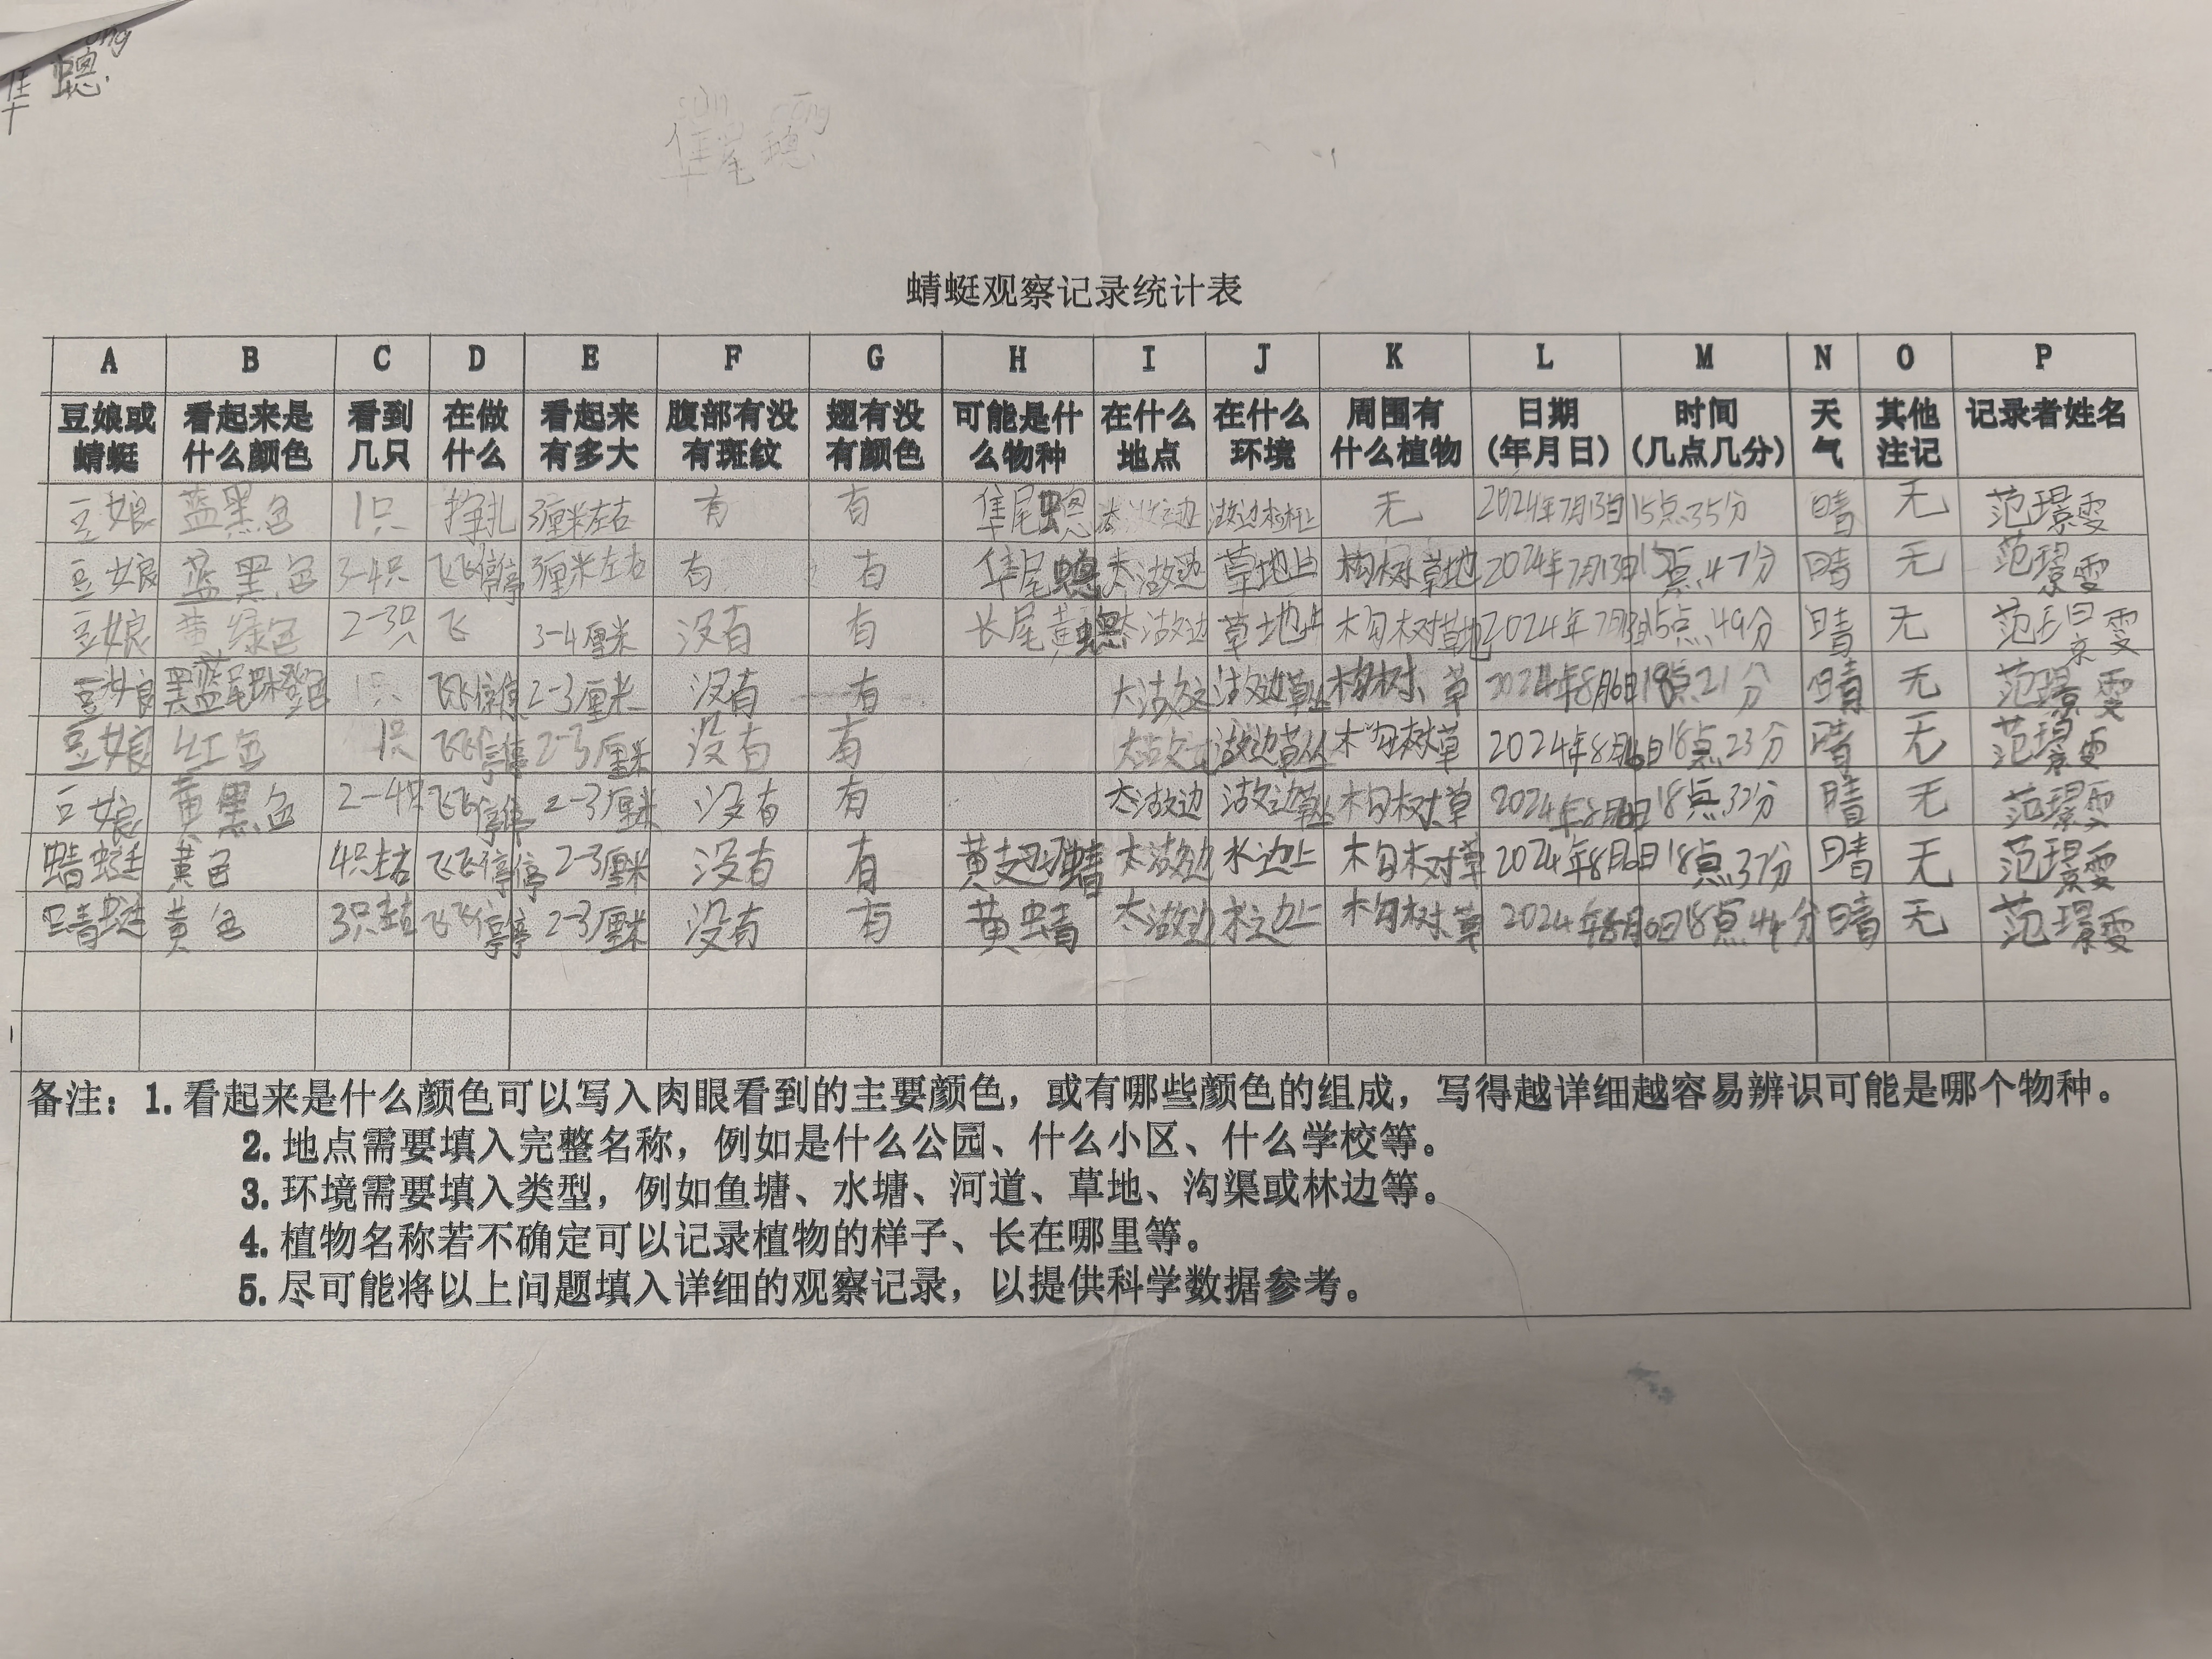 ong
隼 蟌
隼尾蟌
ong
蜻蜓观察记录统计表
A B C D E F G H I J K L M N O P
豆娘或蜻蜓 看起来是什么颜色 看到几只 在做什么 看起来有多大 腹部有没有斑纹 翅有没有颜色 可能是什么物种 在什么地点 在什么环境 周围有什么植物 日期(年月日) 时间(几点几分) 天气 其他注记 记录者姓名
豆娘 蓝黑色 1只 挣扎 3厘米左右 有 有 隼尾蟌 无 2024年7月13日 15点35分 晴 无 范璟雯
豆娘 蓝黑色 3-4只 飞飞停停 3厘米左右 有 有 隼尾蟌 太湖边 草地上 构树草地 2024年7月13日 15点47分 晴 无 范璟雯
豆娘 黄绿色 2-3只 飞 3-4厘米 没有 有 长尾黄蟌 太湖边 草地上 构树草地 2024年7月13日 15点49分 晴 无 范璟雯
豆娘 1只 飞飞停停 2-3厘米 没有 有 太湖边 湖边草丛 构树、草 2024年8月6日 18点21分 晴 无 范璟雯
豆娘 红色 1只 飞飞停停 2-3厘米 没有 有 太湖边 湖边草丛 构树草 2024年8月6日 18点23分 晴 无 范璟雯
豆娘 黄黑色 2-4只 飞飞停停 2-3厘米 没有 有 太湖边 湖边草丛 构树草 2024年8月6日 18点32分 晴 无 范璟雯
蜻蜓 黄色 4只左右 飞飞停停 2-3厘米 没有 有 黄翅蜻 太湖边 水边上 构树草 2024年8月6日 18点37分 晴 无 范璟雯
蜻蜓 黄色 3只左右 飞飞停停 2-3厘米 没有 有 黄蜻 太湖边 水边上 构树草 2024年8月6日 18点44分 晴 无 范璟雯
备注：1. 看起来是什么颜色可以写入肉眼看到的主要颜色，或有哪些颜色的组成，写得越详细越容易辨识可能是哪个物种。
2. 地点需要填入完整名称，例如是什么公园、什么小区、什么学校等。
3. 环境需要填入类型，例如鱼塘、水塘、河道、草地、沟渠或林边等。
4. 植物名称若不确定可以记录植物的样子、长在哪里等。
5. 尽可能将以上问题填入详细的观察记录，以提供科学数据参考。